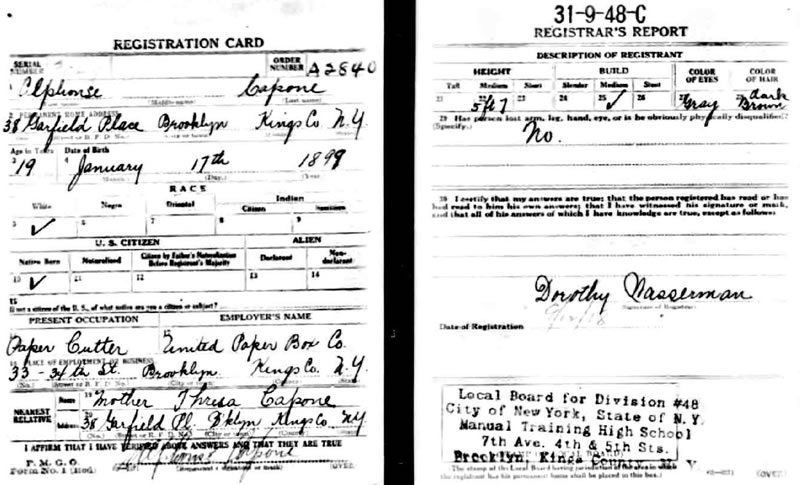 REGISTRATION CARD
SERIAL NUMBER
ORDER NUMBER A2840
1 Alphonse Capone
2 PERMANENT HOME ADDRESS
38 Garfield Place Brooklyn Kings Co. N.Y.
Age in Years Date of Birth
3 19 4 January 17th 1899
(Month.) (Day.) (Year.)
RACE
White Negro Oriental Indian
Citizen Noncitizen
5 ✓ 6 7 8 9
U. S. CITIZEN ALIEN
Native Born Naturalized Citizen by Father's Naturalization Before Registrant's Majority Declarant Non-declarant
10 ✓ 11 12 13 14
15
If not a citizen of the U. S., of what nation are you a citizen or subject?
PRESENT OCCUPATION EMPLOYER'S NAME
Paper Cutter United Paper Box Co.
PLACE OF EMPLOYMENT OR BUSINESS
33 - 34th St. Brooklyn Kings Co. N.Y.
NEAREST RELATIVE
Name 19 Mother Thresa Capone
Address 20 38 Garfield Pl. Bklyn Kings Co. NY
I AFFIRM THAT I HAVE VERIFIED ABOVE ANSWERS AND THAT THEY ARE TRUE
P. M. G. O.
Form No. 1 (Red) Alphonse Capone
(Registrant's signature or mark) (OVER)
31-9-48-C
REGISTRAR'S REPORT
DESCRIPTION OF REGISTRANT
HEIGHT BUILD COLOR OF EYES COLOR OF HAIR
Tall Medium Short Slender Medium Stout
21 22 5ft 7 23 24 25 ✓ 26 27 Gray 28 dark Brown
29 Has person lost arm, leg, hand, eye, or is he obviously physically disqualified?
(Specify.) No.
30 I certify that my answers are true; that the person registered has read or has
had read to him his own answers; that I have witnessed his signature or mark,
and that all of his answers of which I have knowledge are true, except as follows:
Dorothy Wasserman
(Signature of Registrar)
Date of Registration
Local Board for Division #48
City of New York, State of N.Y.
Manual Training High School
7th Ave. 4th & 5th Sts.
Brooklyn, Kings County N. Y.
(The stamp of the Local Board having jurisdiction of the area in which
the registrant has his permanent home shall be placed in this box.)
(OVER)